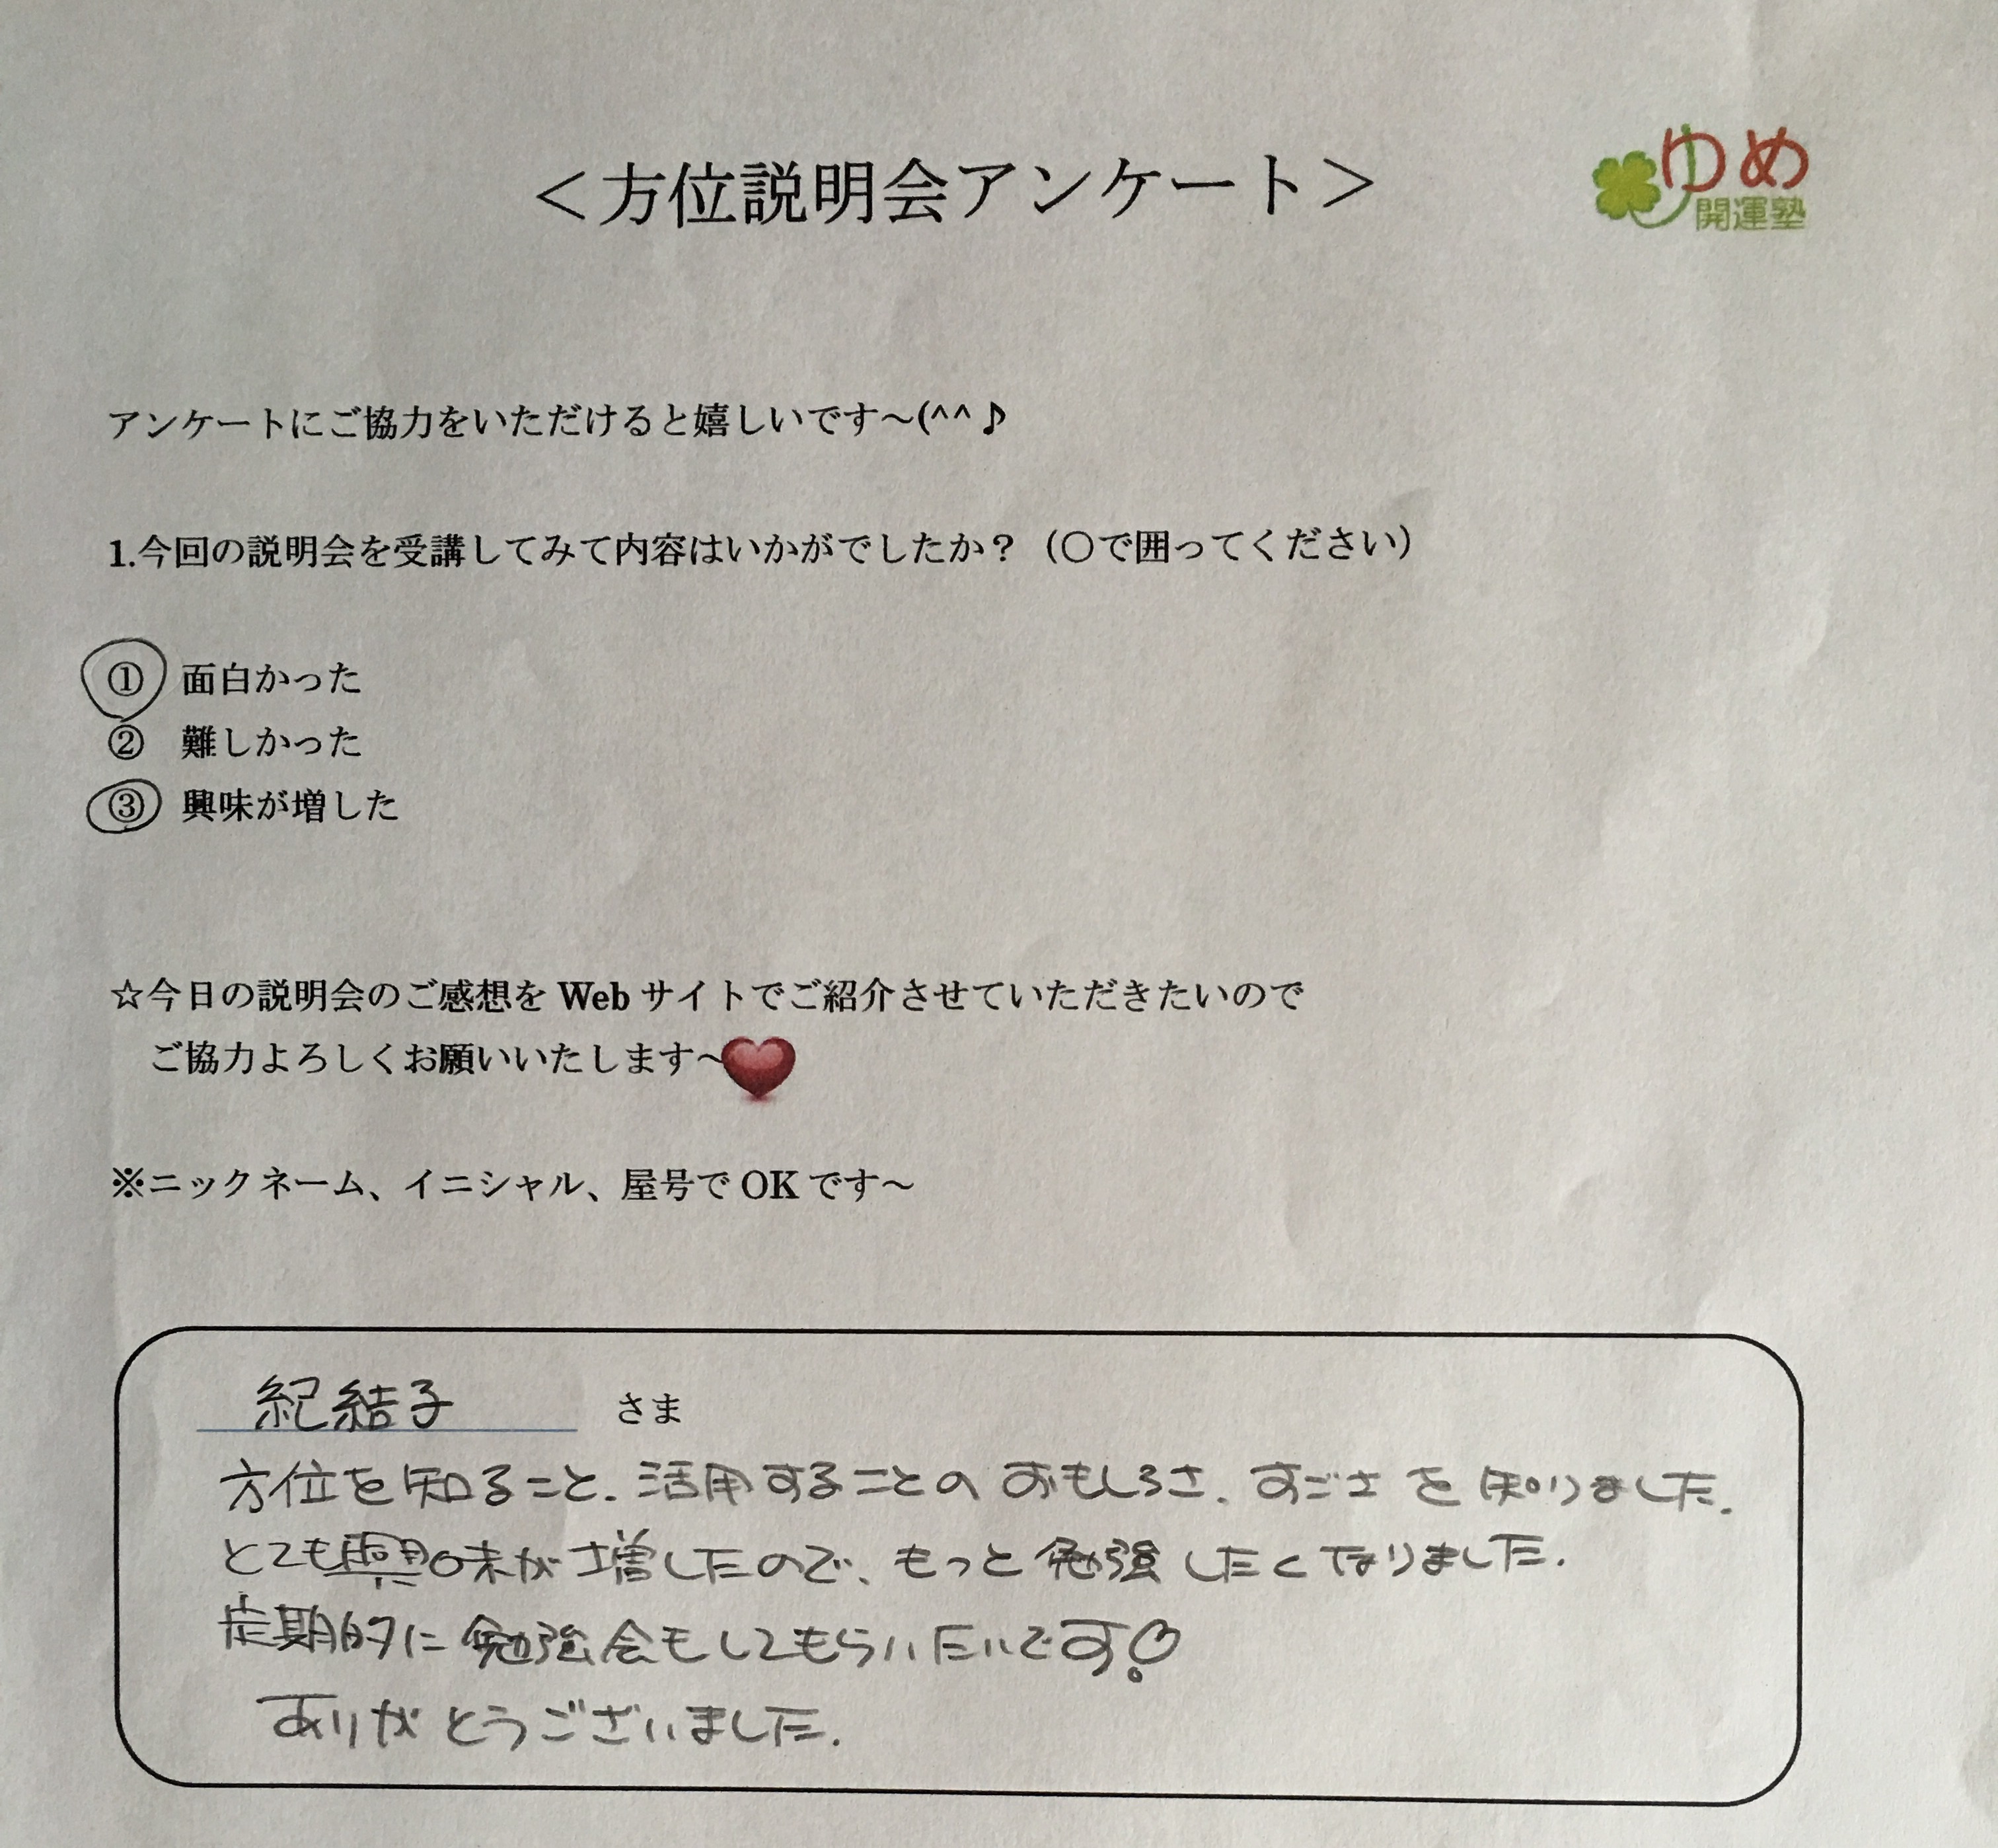 ＜方位説明会アンケート＞
ゆめ
開運塾
アンケートにご協力をいただけると嬉しいです～(^^♪
1.今回の説明会を受講してみて内容はいかがでしたか？（○で囲ってください）
① 面白かった
② 難しかった
③ 興味が増した
☆今日の説明会のご感想を Web サイトでご紹介させていただきたいので
ご協力よろしくお願いいたします～
※ニックネーム、イニシャル、屋号で OK です～
紀結子 さま
方位を知ること、活用することの おもしろさ、すごさ を 知りました。
とても興味が増したので、もっと勉強したくなりました。
定期的に勉強会もしてもらいたいです!
ありがとうございました。